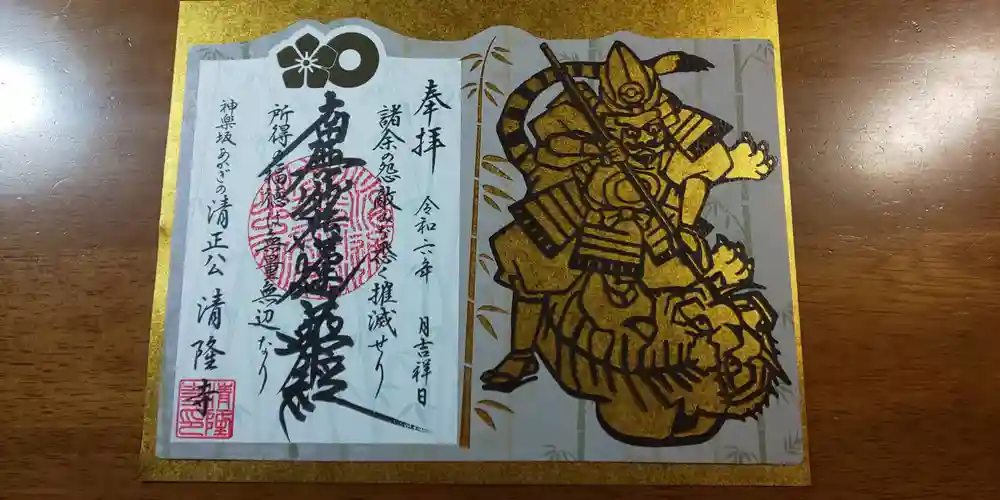 奉拝
令和六年 月吉祥日
諸余の怨敵みな悉く摧滅せり
南無妙法蓮華経
所得の福徳は無量無辺なり
神楽坂あかぎの清正公 清隆寺
清隆
寺印